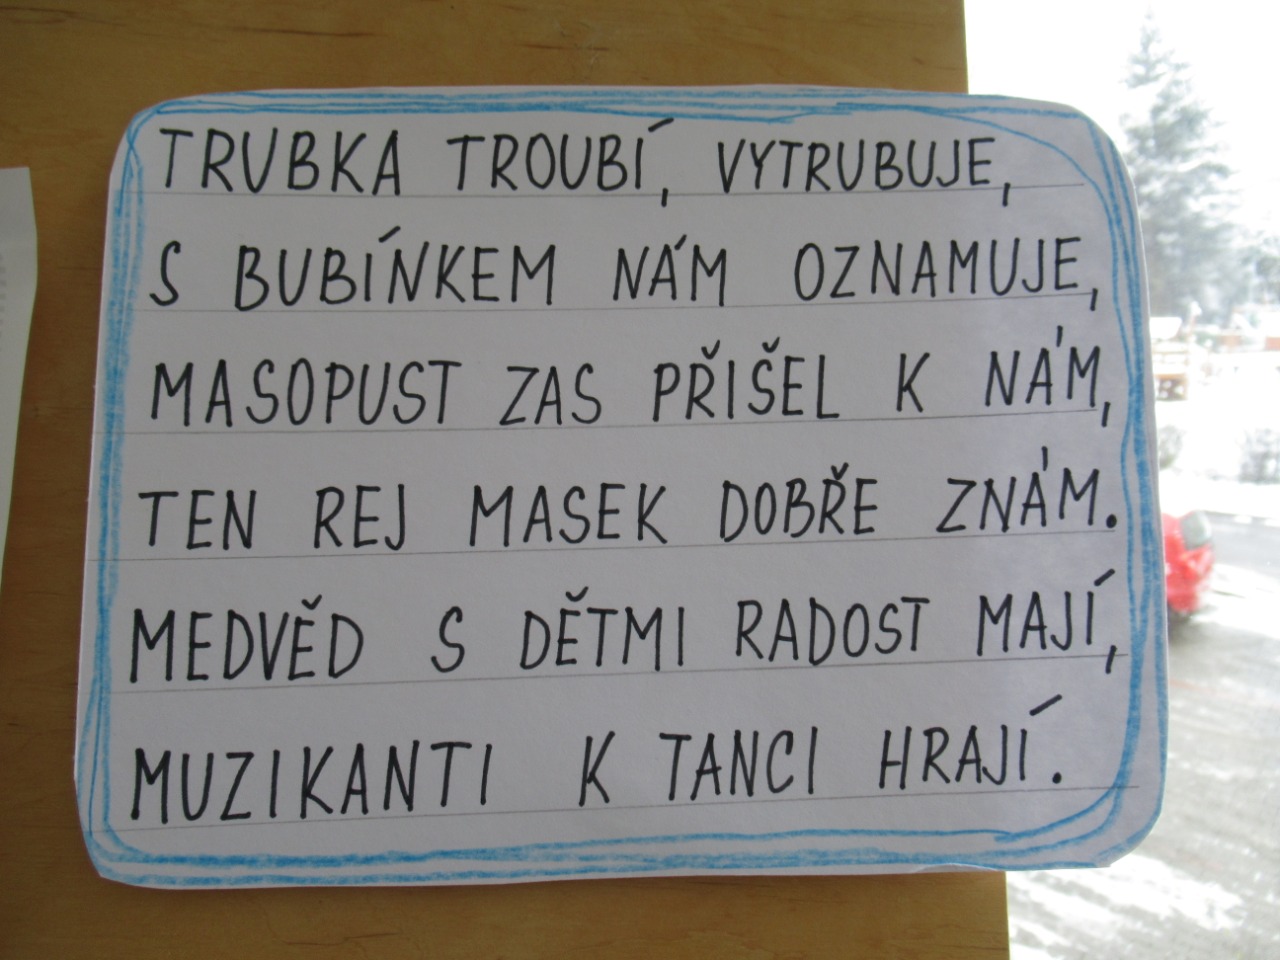 TRUBKA TROUBÍ, VYTRUBUJE,
S BUBÍNKEM NÁM OZNAMUJE,
MASOPUST ZAS PŘIŠEL K NÁM,
TEN REJ MASEK DOBŘE ZNÁM.
MEDVĚD S DĚTMI RADOST MAJÍ,
MUZIKANTI K TANCI HRAJÍ.